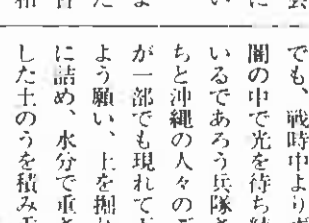 でも、戦時中より
闇の中で光を待ち
いるであろう兵隊
ちと沖縄の人々の
が一部でも現れて
よう願い、土を掘
に詰め、水分で重
した土のうを積み